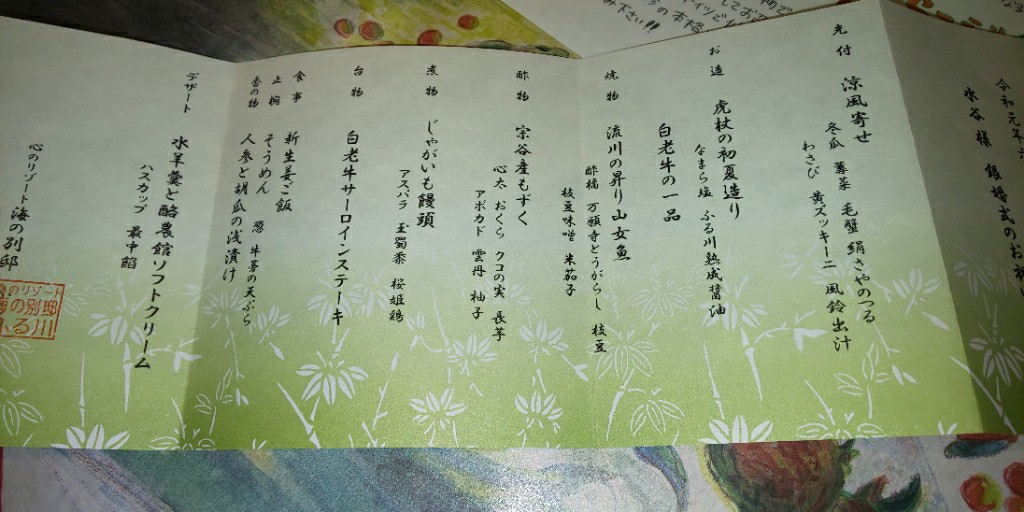 令和元年六
水谷様 銀婚式のお祝い
先付
涼風寄せ
冬瓜 蓴菜 毛蟹 絹さやのつる
わさび 黄ズッキーニ 風鈴出汁
お造
虎杖の初夏造り
なまら塩 ふる川熟成醤油
白老牛の一品
焼物
流川の昇り山女魚
酢橘 万願寺とうがらし 枝豆
枝豆味噌 米茄子
酢物
宗谷産もずく
心太 おくら クコの実 長芋
アボカド 雲丹 柚子
煮物
じゃがいも饅頭
アスパラ 玉蜀黍 桜姫鶏
台物
白老牛サーロインステーキ
食事
新生姜ご飯
止椀
そうめん 葱 牛蒡の天ぷら
香の物
人参と胡瓜の浅漬け
デザート
水羊羹と酪農館ソフトクリーム
ハスカップ 最中餡
心のリゾート海の別邸
のリゾート
海の別邸
ふる川
み下さい!!